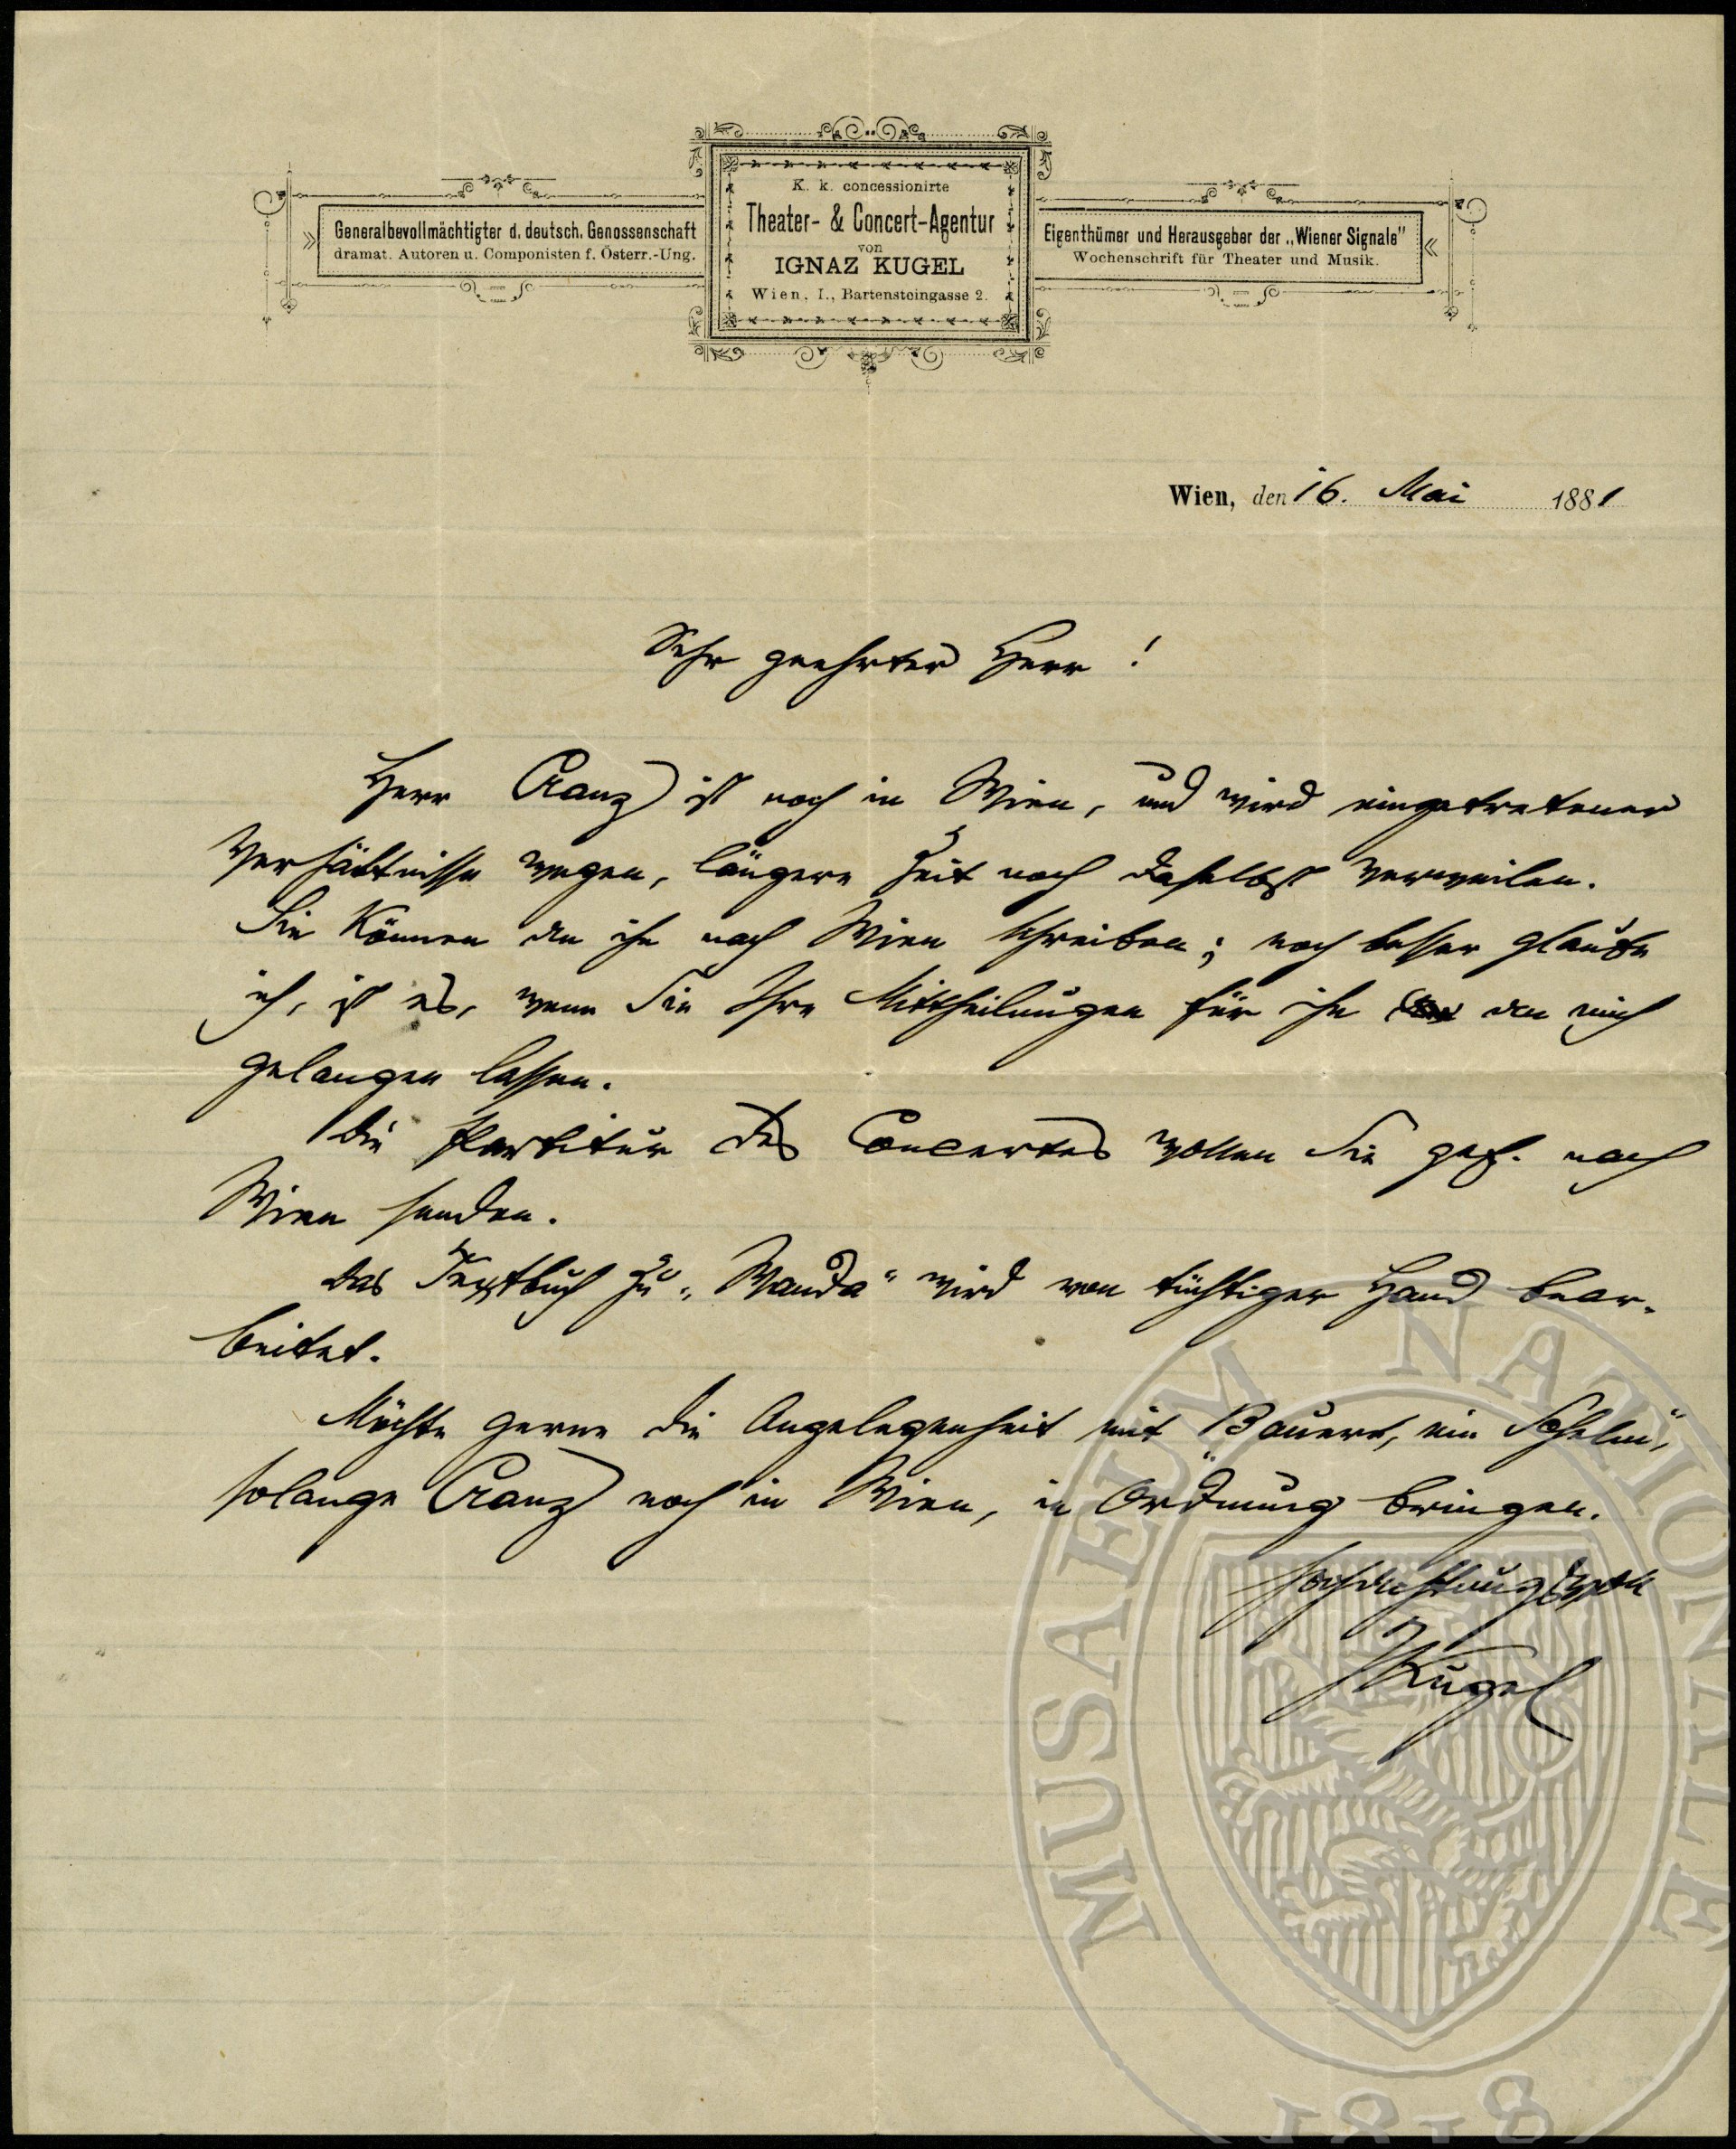 K. k. concessionirte
Theater- & Concert-Agentur
von
IGNAZ KUGEL
Wien, I., Bartensteingasse 2.
Generalbevollmächtigter d. deutsch. Genossenschaft
dramat. Autoren u. Componisten f. Österr.-Ung.
Eigenthümer und Herausgeber der „Wiener Signale"
Wochenschrift für Theater und Musik.
Wien, den 16. Mai 1881
Sehr geehrter Herr !
Herr Cranz ist noch in Wien, und wird eingetretener
Verhältnisse wegen, längere Zeit noch daselbst verweilen.
Sie können an ihn nach Wien schreiben; noch besser glaube
ich, ist es, wenn Sie Ihre Mittheilungen für ihn an mich
gelangen lassen.
Die Partitur des Concertes wollen Sie gef. nach
Wien senden.
Das Textbuch zu „Wanda" wird von tüchtiger Hand bear-
beitet.
Möchte gerne die Angelegenheit mit „Bauer, ein Schelm",
solange Cranz noch in Wien, in Ordnung bringen.
Hochachtungsvoll
Kugel
MUSAEUM NATIONALE
1818